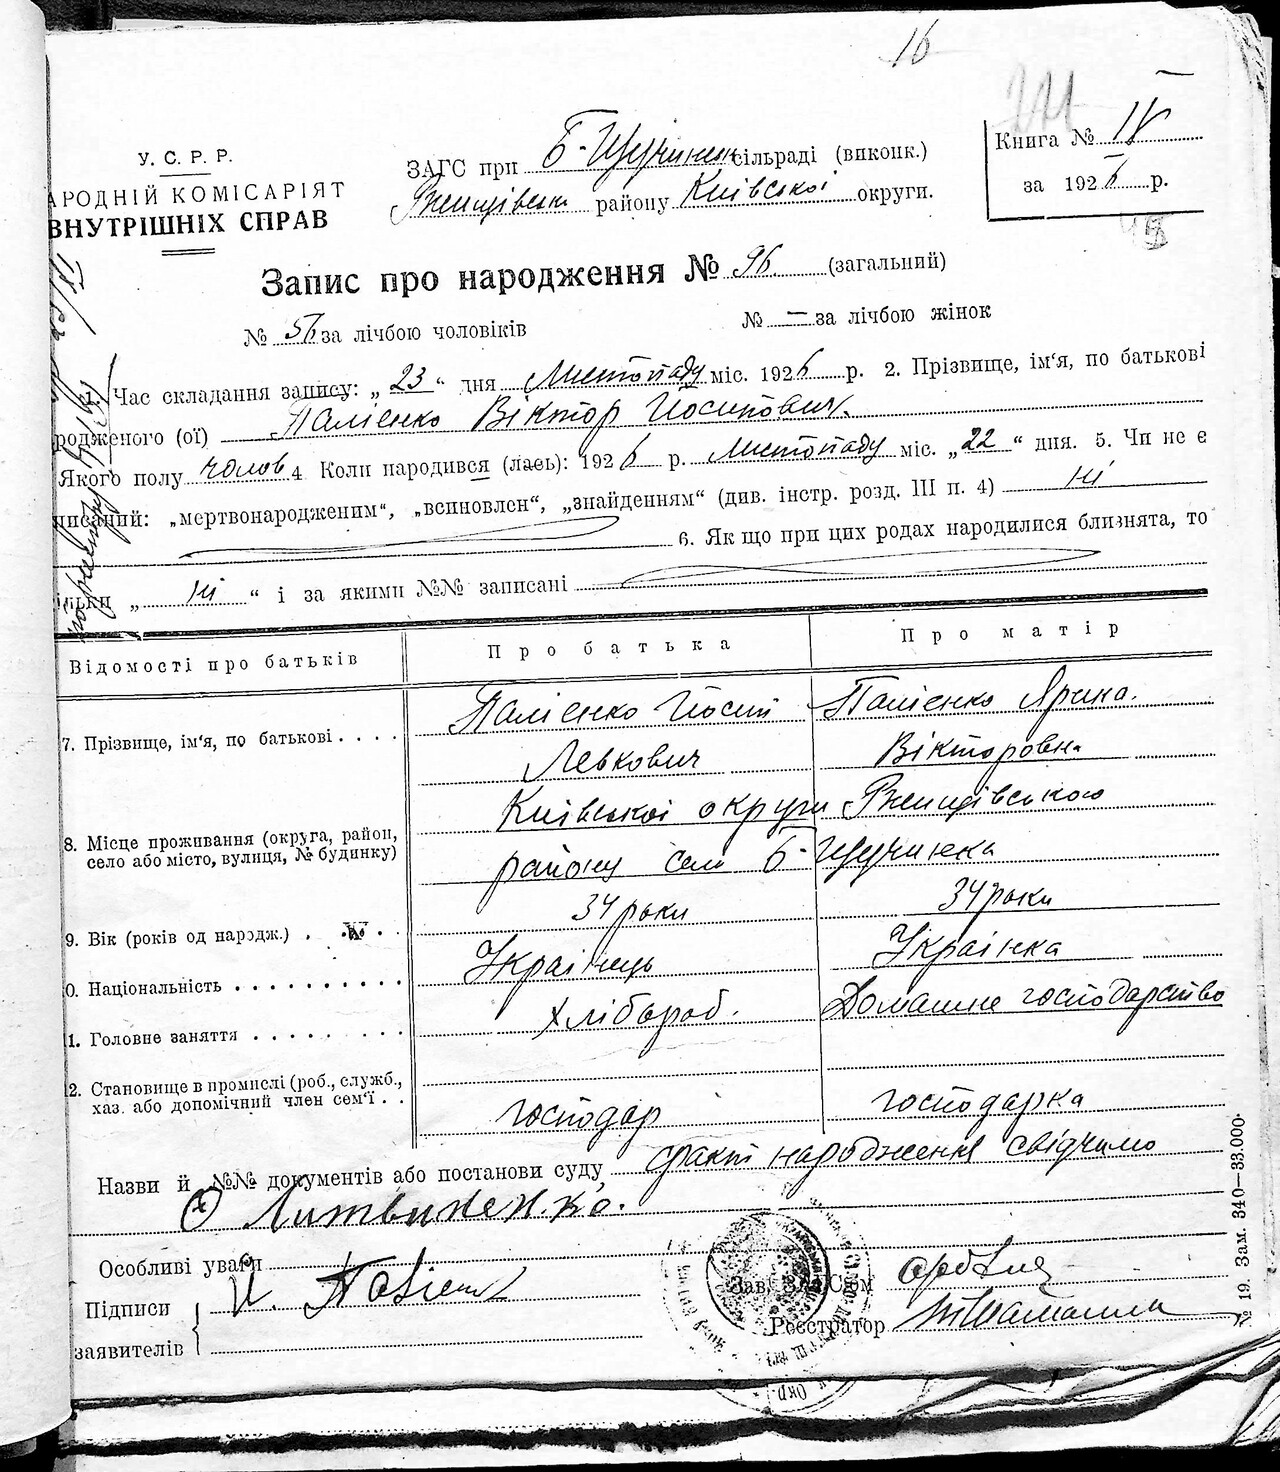 16
У. С. Р. Р.
АРОДНІЙ КОМІСАРІЯТ
ВНУТРІШНІХ СПРАВ
ЗАГС при Б-Щучинськ сільраді (виконк.)
Ржищівськ району Київської округи.
Книга № IV
за 1926 р.
Запис про народження № 96. (загальний)
№ 56 за лічбою чоловіків № – за лічбою жінок
1. Час складання запису: „ 23 “ дня Листопаду міс. 1926 р. 2. Прізвище, ім‘я, по батькові
родженого (ої) Палієнко Віктор Йосипович.
Якого полу чолов 4. Коли народився (лась): 1926 р. Листопаду міс. „ 22 “ дня. 5. Чи не є
писаний: „мертвонародженим“, „всиновлен“, „знайденням“ (див. інстр. розд. III п. 4) ні
6. Як що при цих родах народилися близнята, то
ільки „ ні “ і за якими №№ записані
Відомості про батьків Про батька Про матір
7. Прізвище, ім‘я, по батькові . . . . Палієнко Йосип Левкович Палієнко Ярина. Вікторовна
8. Місце проживання (округа, район, село або місто, вулиця, № будинку) Київської округи Ржищівського
району села Б-Щучинка
9. Вік (років од народж.) . . . 34 роки 34 роки
0. Національність . . . . . . . . . . Українець Українка
1. Головне заняття . . . . . . . . Хлібороб. Домашне господарство
2. Становище в промислі (роб., служб., хаз. або допомічний член сем‘ї . . господар господарка
Назви й №№ документів або постанови суду, факт народження свідчимо
Литвиненко.
Особливі уваги
Підписи
заявителів
Й. Палієнко
Зав. ЗАГСом
Реєстратор
№ 19. Зам. 340—33.000.